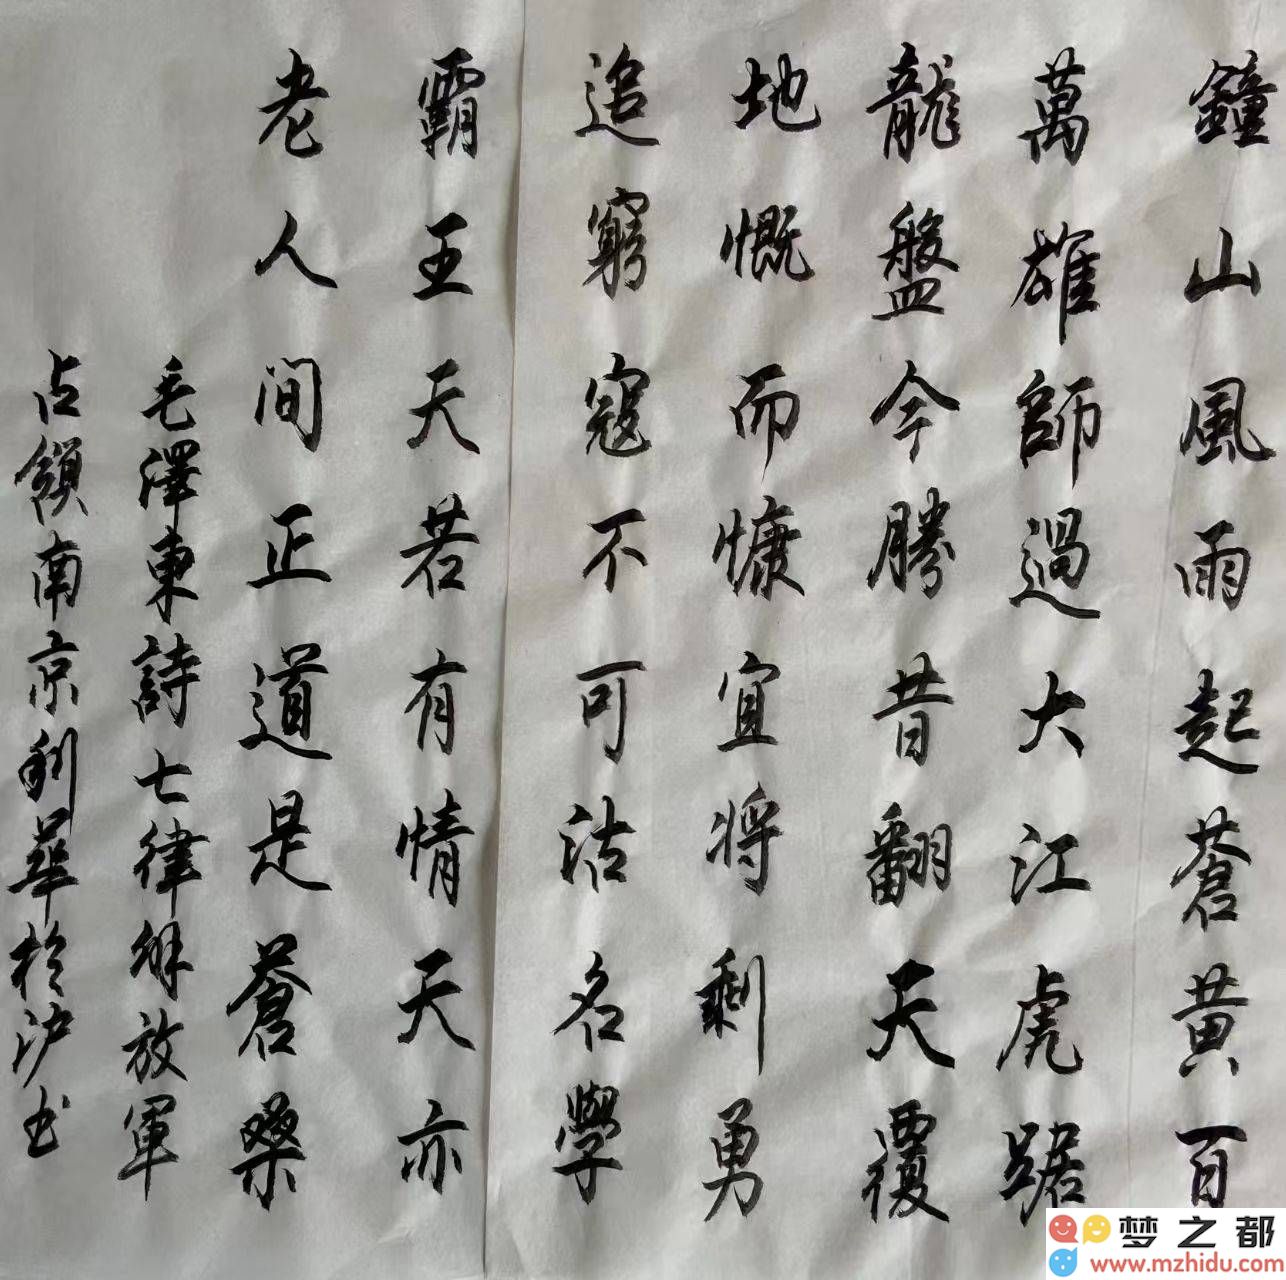 鐘山風雨起蒼黄百
萬雄師過大江虎踞
龍盤今勝昔翻天覆
地慨而慷宜将剩勇
追窮寇不可沽名學
霸王天若有情天亦
老人间正道是蒼桑
毛澤東詩七律解放軍
占領南京利華於沪书
梦之都
www.mzhidu.com